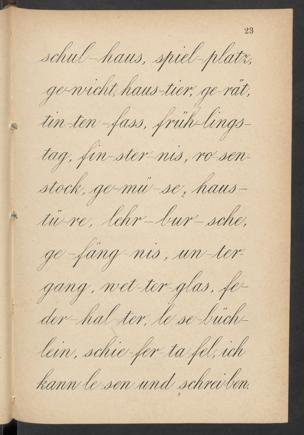 23
schul-haus, spiel-platz,
ge-wicht, haus-tier, ge-rät,
tin-ten-fass, früh-lings-
tag, fin-ster-nis, ro-sen-
stock, ge-mü-se, haus-
tü-re, lehr-bur-sche,
ge-fäng-nis, un-ter-
gang, wet-ter-glas, fe-
der-hal-ter, le-se-büch-
lein, schie-fer-ta-fel, ich
kann le-sen und schrei-ben.